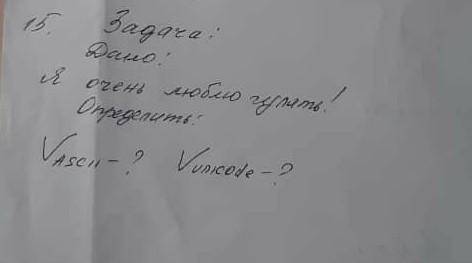 15. Задача:
Дано:
Я очень люблю гулять!
Определить:
VASCII - ? Vunicode - ?